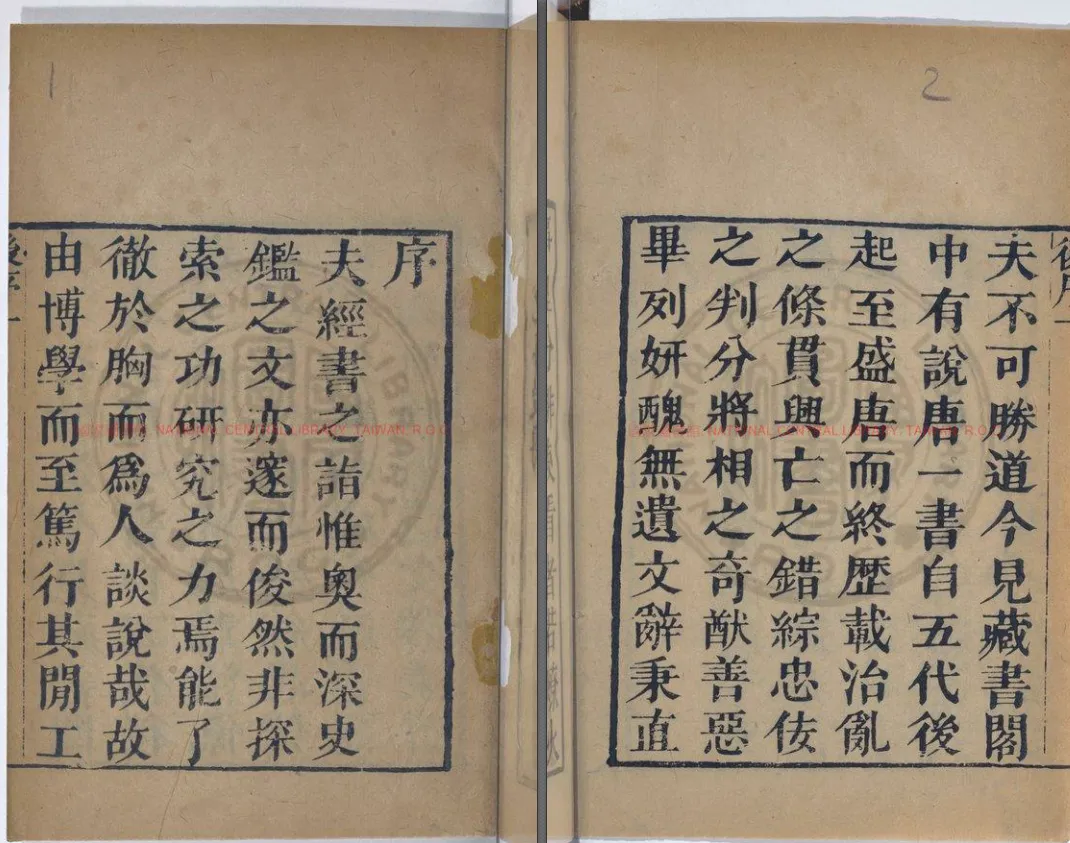 1
序
夫經書之詣惟奧而深史
鑑之文亦邃而俊然非探
索之功研究之力焉能了
徹於胸而爲人談說哉故
由博學而至篤行其閒工
後序一
NATIONAL CENTRAL LIBRARY, TAIWAN, R.O.C
2
後序一
夫不可勝道今見藏書閣
中有說唐一書自五代後
起至盛唐而終歷載治亂
之條貫興亡之錯綜忠佞
之判分將相之奇猷善惡
畢列妍醜無遺文辭秉直
NATIONAL CENTRAL LIBRARY, TAIWAN, R.O.C